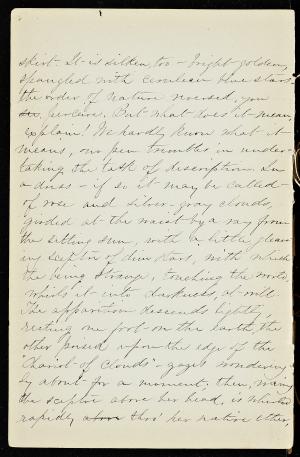 skirt. It is silken, too - bright golden,
spangled with cerulean blue stars
the order of Nature reversed, you
see, perceive. But what does it mean,
explain! We hardly know what it
means, our pen trembles in under-
taking the task of description. In
a dress - if so it may be called -
of rose and silver-gray clouds,
girded at the waist by a ray from
the setting sun, with a little gleam-
ing sceptre of dim stars, with which
the being strange, touching the world,
whirls it into darkness, at will.
The apparition descends lightly,
resting one foot on the earth, the
other poised upon the edge of the
"Chariot of Clouds" - gazes wondering-
ly about for a moment; then, waving
the sceptre above her head, is whirled
rapidly above thro' her native ether,